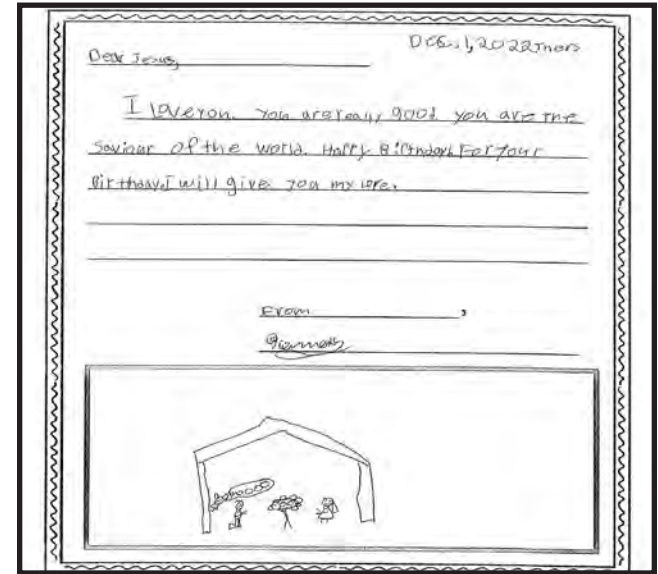 Dec. 1, 2022
Dear Jesus,
I love you. You are really good you are the
saviour of the world. Happy Birthday! For your
Birthday, I will give you my love.
From,